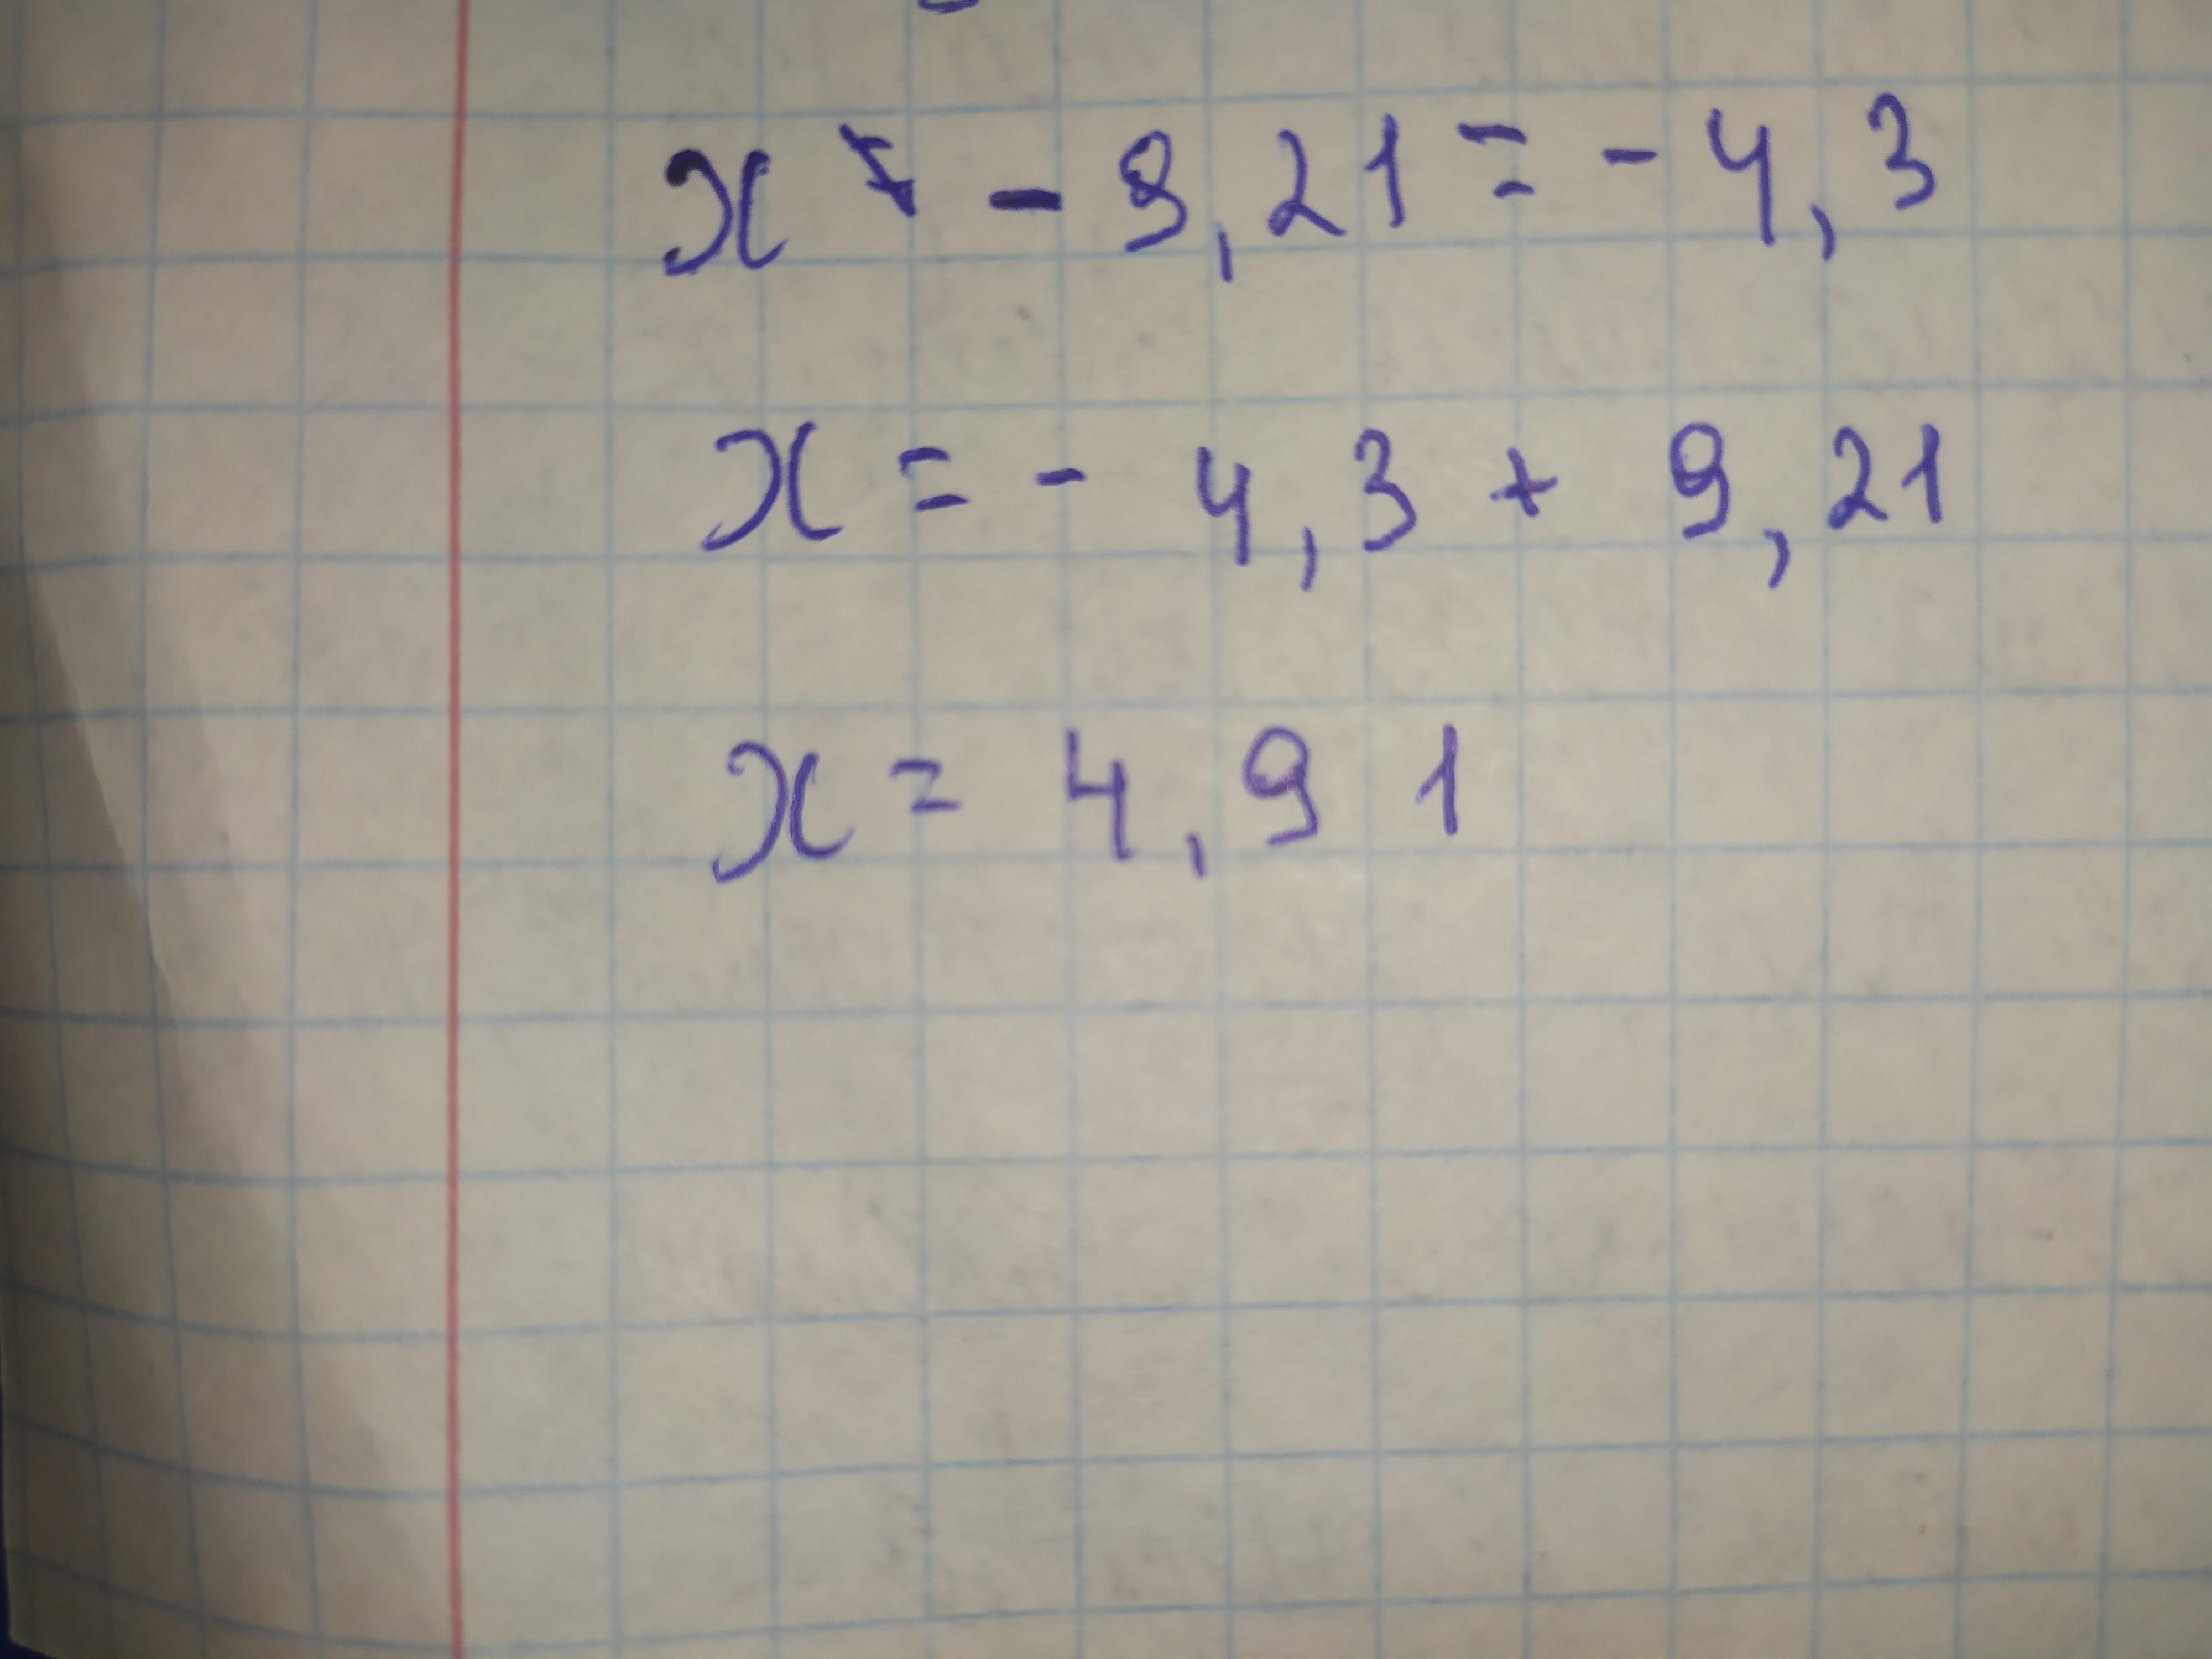 x - 9,21 = - 4,3
x = - 4,3 + 9,21
x = 4,91